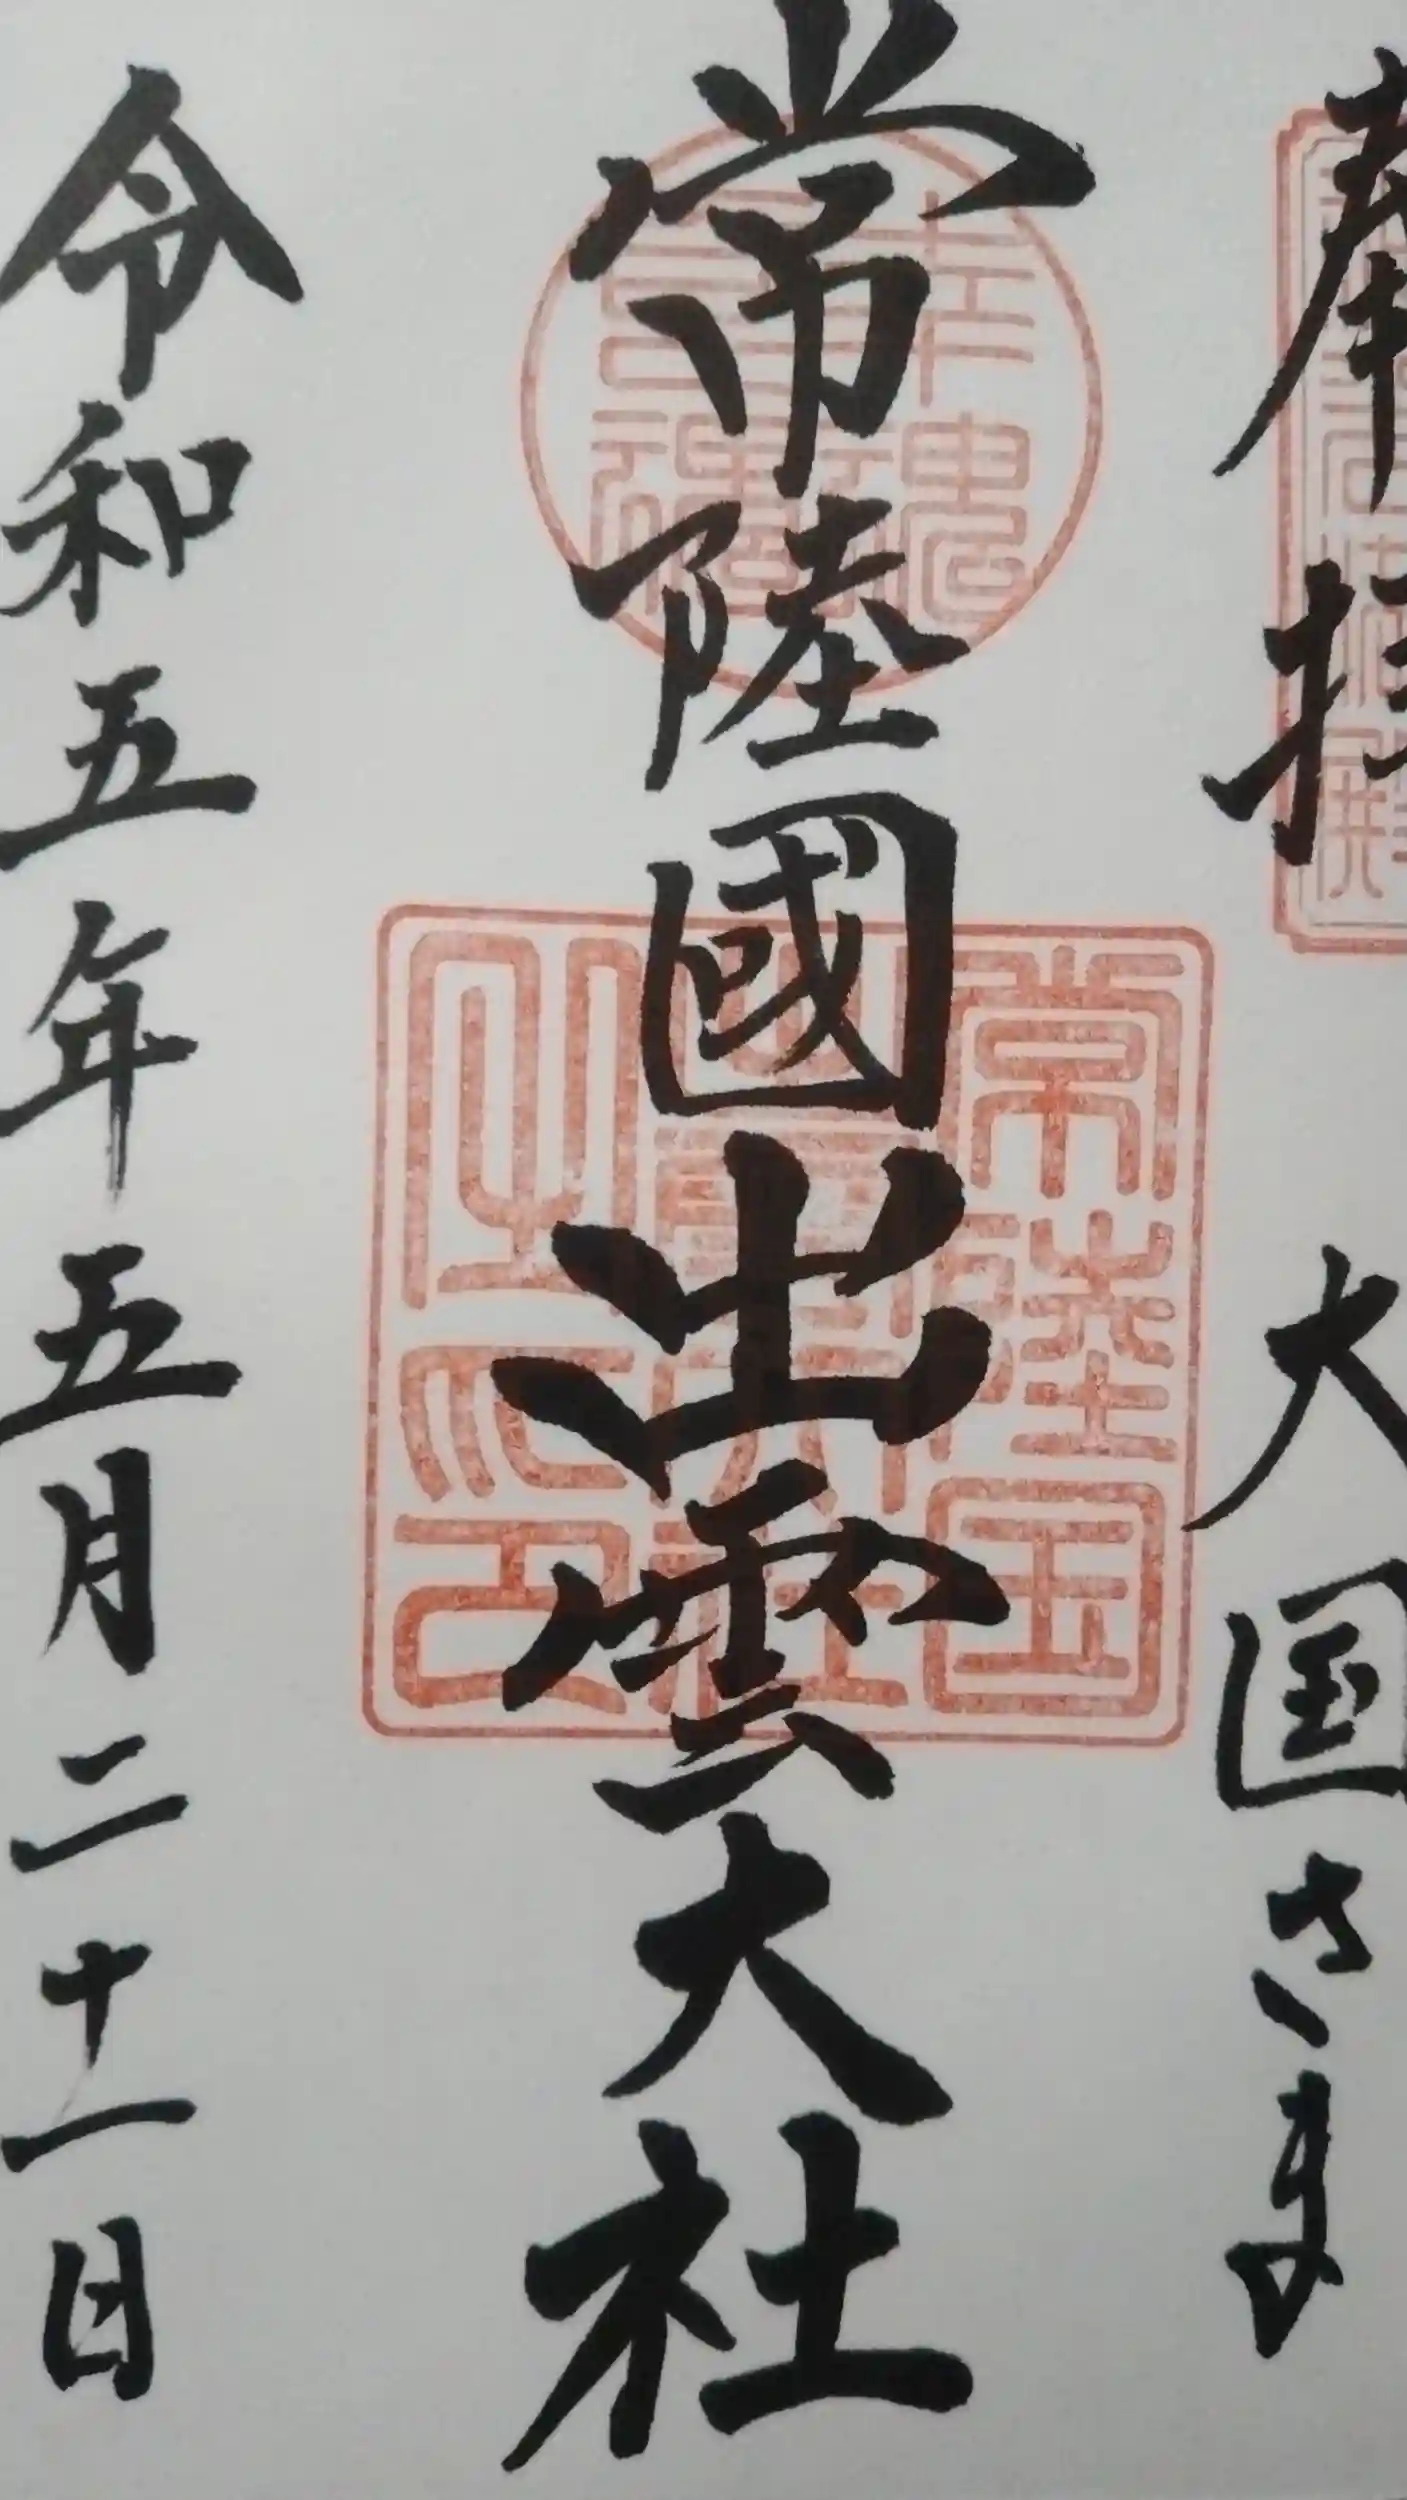 奉拝 大国さま
常陸國出雲大社
令和五年五月二十一日
常陸国出雲大社之印